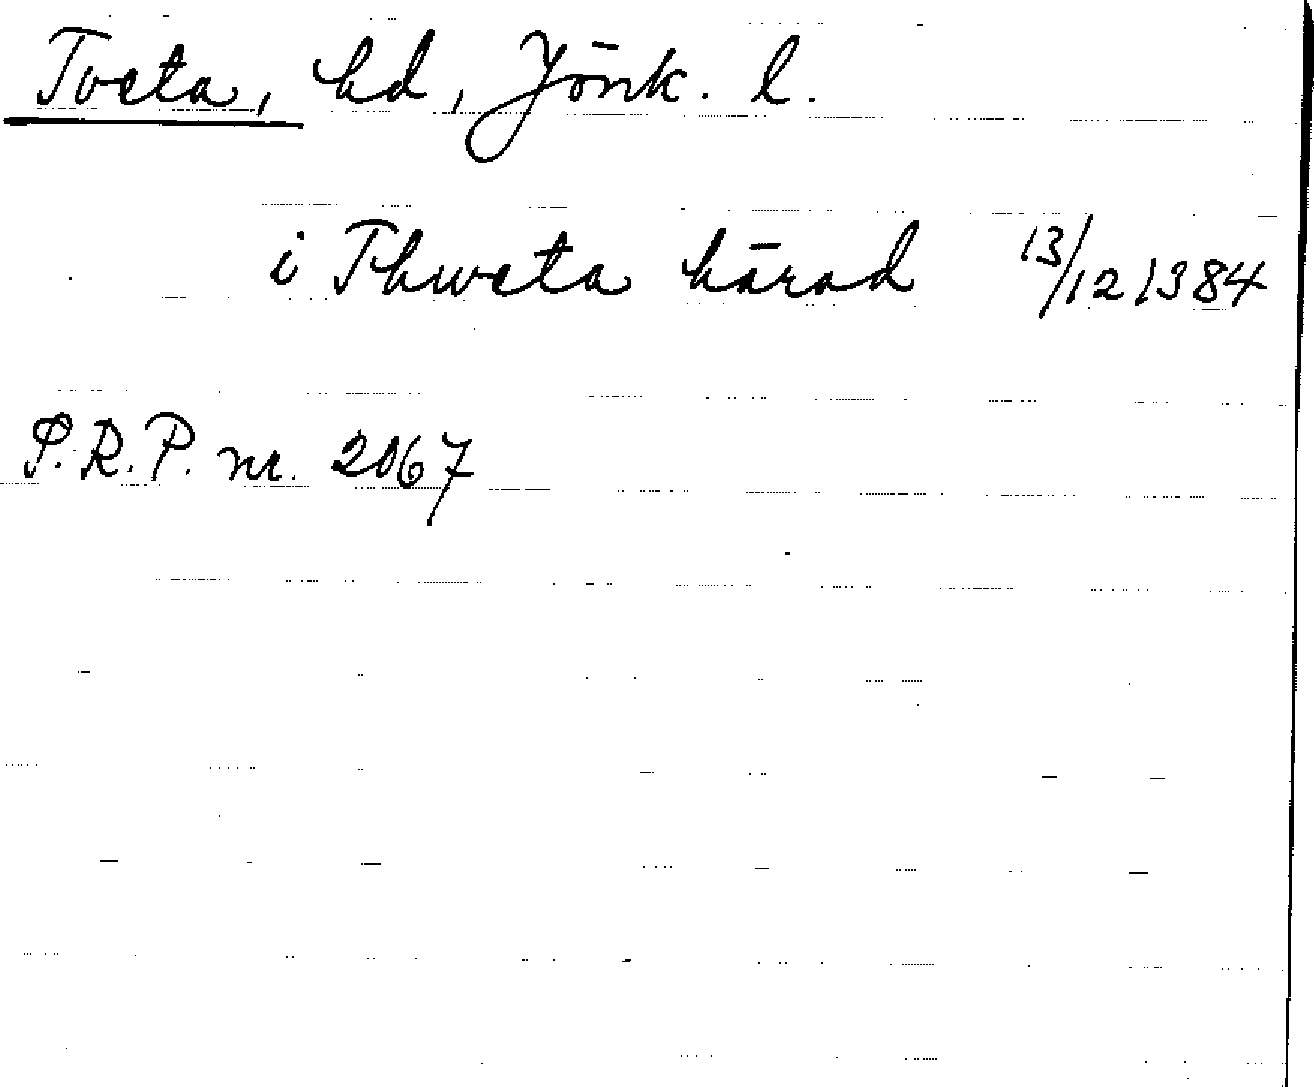 Tveta, hd, Jönk. l.
i Thweta härad 13/12 1384
S.R.P. nr. 2067